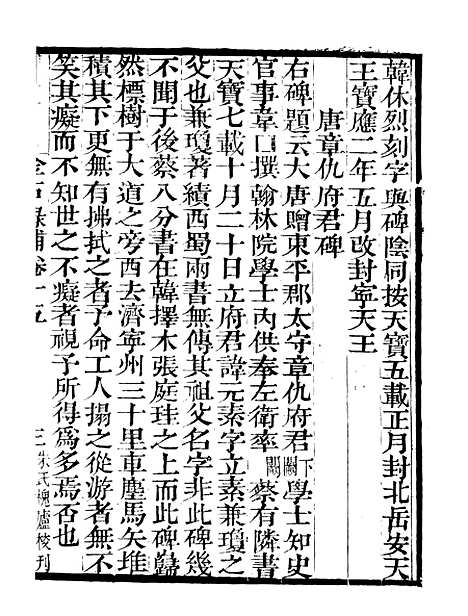 韓休烈刻字與碑陰同按天寶五載正月封北岳安天
王寶應二年五月改封寧天王
唐章仇府君碑
右碑題云大唐贈東平郡太守章仇府君下闕學士知史
官事韋囗撰翰林院學士內供奉左衛率闕蔡有隣書
天寶七載十月二十日立府君諱元素字立素兼瓊之
父也兼瓊著績西蜀兩書無傳其祖父名字非此碑幾
不聞于後蔡八分書在韓擇木張庭珪之上而此碑歸
然標樹于大道之旁西去濟寧州三十里車塵馬矢堆
積其下更無有拂拭之者予命工人搨之從游者無不
笑其癡而不知世之不癡者視予所得為多焉否也
金石錄補卷十五
三朱氏槐廬校刊